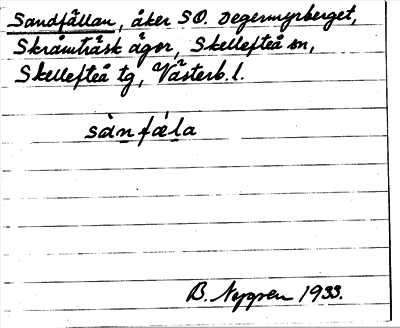 Sandfällan, åker SO. Degermyrberget,
Skråmträsk ägor, Skellefteå sn,
Skellefteå tg, Västerb. l.
sànfǽla
B. Nygren 1933.